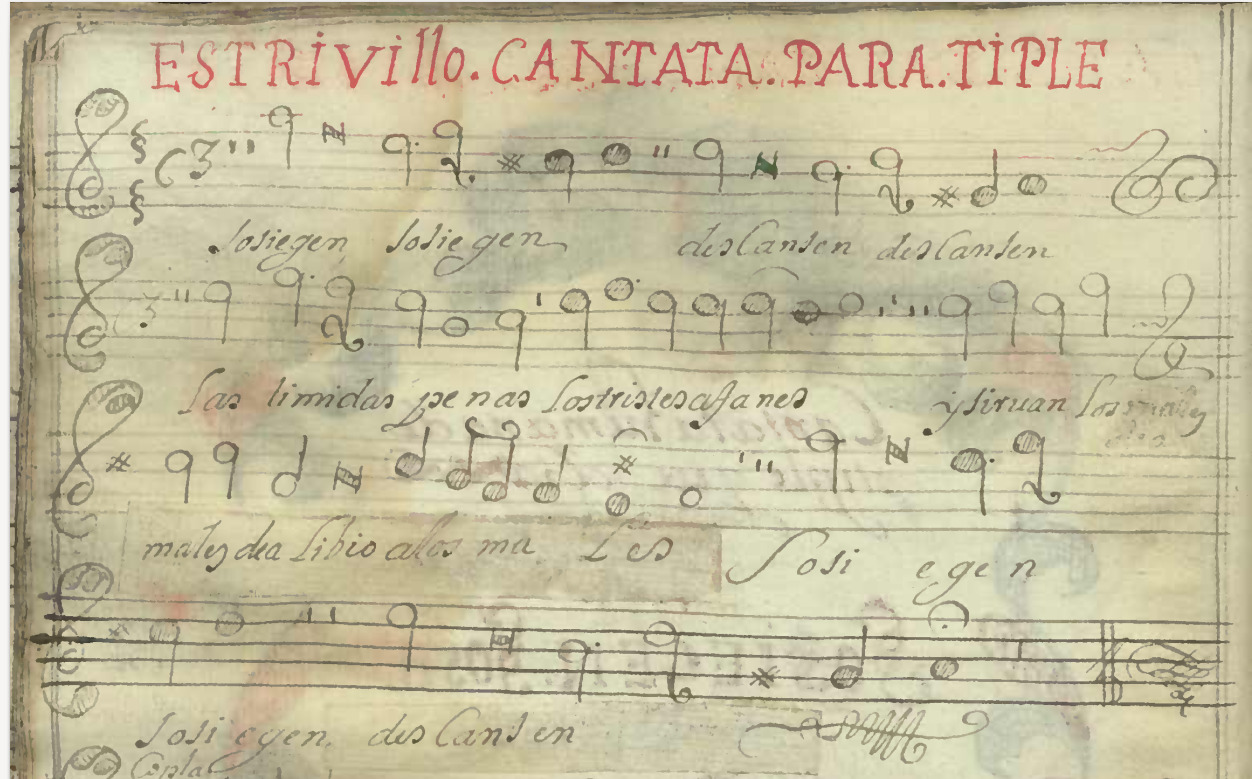 ESTRIVIllO.CANTATA.PARA.TIPLE
sosiegen sosiegen descansen descansen
Las timidas penas los tristes afanes y siruan los males
males dea libio alos ma les Sosi egen
sosi egen descansen
Copla